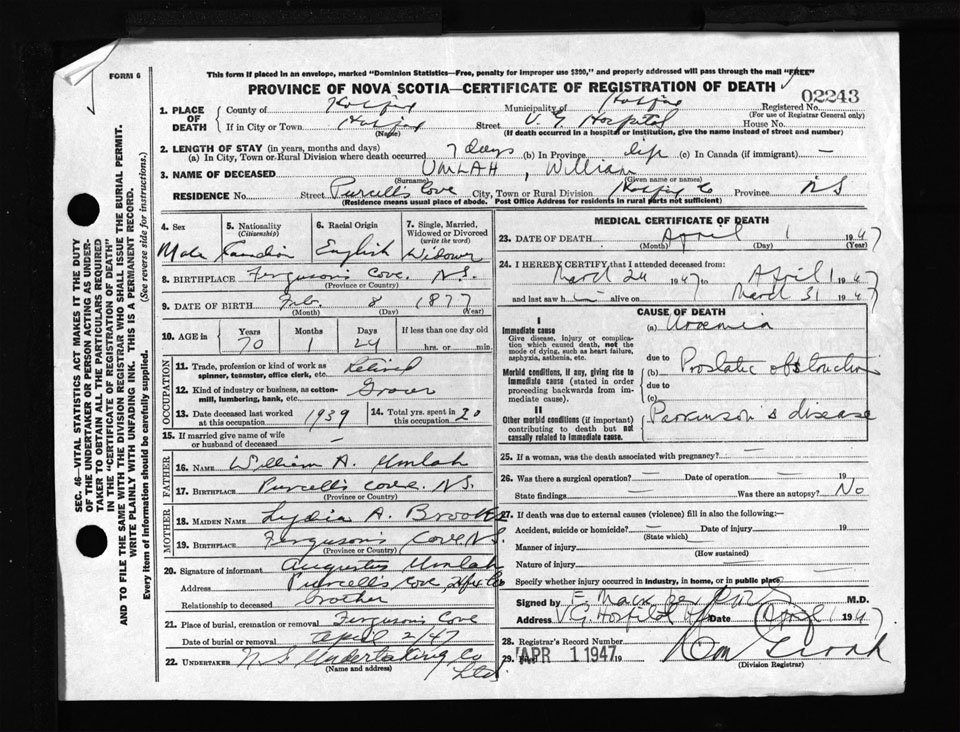 FORM 6
This form if placed in an envelope, marked "Dominion Statistics—Free, penalty for improper use $300," and properly addressed will pass through the mail "FREE"
PROVINCE OF NOVA SCOTIA—CERTIFICATE OF REGISTRATION OF DEATH
02243
1. PLACE OF DEATH
County of Halifax Municipality of Halifax Registered No.
(For use of Registrar General only)
If in City or Town Halifax Street V. G. Hospital House No.
(Name) (If death occurred in a hospital or institution, give the name instead of street and number)
2. LENGTH OF STAY (in years, months and days)
(a) In City, Town or Rural Division where death occurred 7 days (b) In Province life (c) In Canada (if immigrant) —
3. NAME OF DECEASED UMLAH, William
(Surname) (Given name or names)
RESIDENCE No. Street Purcell's Cove City, Town or Rural Division Halifax Co Province NS
(Residence means usual place of abode. Post Office Address for residents in rural parts not sufficient)
4. Sex Male
5. Nationality (Citizenship) Canadian
6. Racial Origin English
7. Single, Married, Widowed or Divorced (write the word) Widower
8. BIRTHPLACE Ferguson's Cove. N.S.
(Province or Country)
9. DATE OF BIRTH Feb. 8 1877
(Month) (Day) (Year)
10. AGE in Years Months Days If less than one day old
70 1 24 hrs. or min.
OCCUPATION
11. Trade, profession or kind of work as spinner, teamster, office clerk, etc. Retired
12. Kind of industry or business, as cotton-mill, lumbering, bank, etc. Grocer
13. Date deceased last worked at this occupation 1939
14. Total yrs. spent in this occupation 20
15. If married give name of wife or husband of deceased —
FATHER
16. NAME William A. Umlah
17. BIRTHPLACE Purcell's Cove. N.S.
(Province or Country)
MOTHER
18. MAIDEN NAME Lydia A. Brooks
19. BIRTHPLACE Ferguson's Cove N.S.
(Province or Country)
20. Signature of informant Augustus Umlah
Address Purcell's Cove Hfx Co
Relationship to deceased brother
21. Place of burial, cremation or removal Ferguson's Cove
Date of burial or removal April 2/47
22. UNDERTAKER N.S. Undertaking Co Ltd
(Name and address)
MEDICAL CERTIFICATE OF DEATH
23. DATE OF DEATH April 1 1947
(Month) (Day) (Year)
24. I HEREBY CERTIFY that I attended deceased from:
March 24 1947 to April 1 1947
and last saw h im alive on March 31 1947
CAUSE OF DEATH
I
Immediate cause (a) Uraemia
Give disease, injury or complication which caused death, not the mode of dying, such as heart failure, asphyxia, asthenia, etc.
due to
Morbid conditions, if any, giving rise to immediate cause (stated in order proceeding backwards from immediate cause).
(b) Prostatic obstruction
due to
(c)
II
Other morbid conditions (if important) contributing to death but not causally related to immediate cause.
Parkinson's disease
25. If a woman, was the death associated with pregnancy? —
26. Was there a surgical operation? — Date of operation — 19
State findings — Was there an autopsy? No
27. If death was due to external causes (violence) fill in also the following:—
Accident, suicide or homicide? — Date of injury 19
(State which)
Manner of injury
(How sustained)
Nature of injury
Specify whether injury occurred in industry, in home, or in public place
Signed by M.D.
Address V G Hospital Date April 1 1947
28. Registrar's Record Number
29. APR 1 1947 19
(Division Registrar)
SEC. 46—VITAL STATISTICS ACT MAKES IT THE DUTY
OF THE UNDERTAKER OR PERSON ACTING AS UNDER-
TAKER TO OBTAIN ALL THE PARTICULARS REQUIRED
IN THE "CERTIFICATE OF REGISTRATION OF DEATH"
AND TO FILE THE SAME WITH THE DIVISION REGISTRAR WHO SHALL ISSUE THE BURIAL PERMIT.
WRITE PLAINLY WITH UNFADING INK. THIS IS A PERMANENT RECORD.
Every item of information should be carefully supplied. (See reverse side for instructions.)